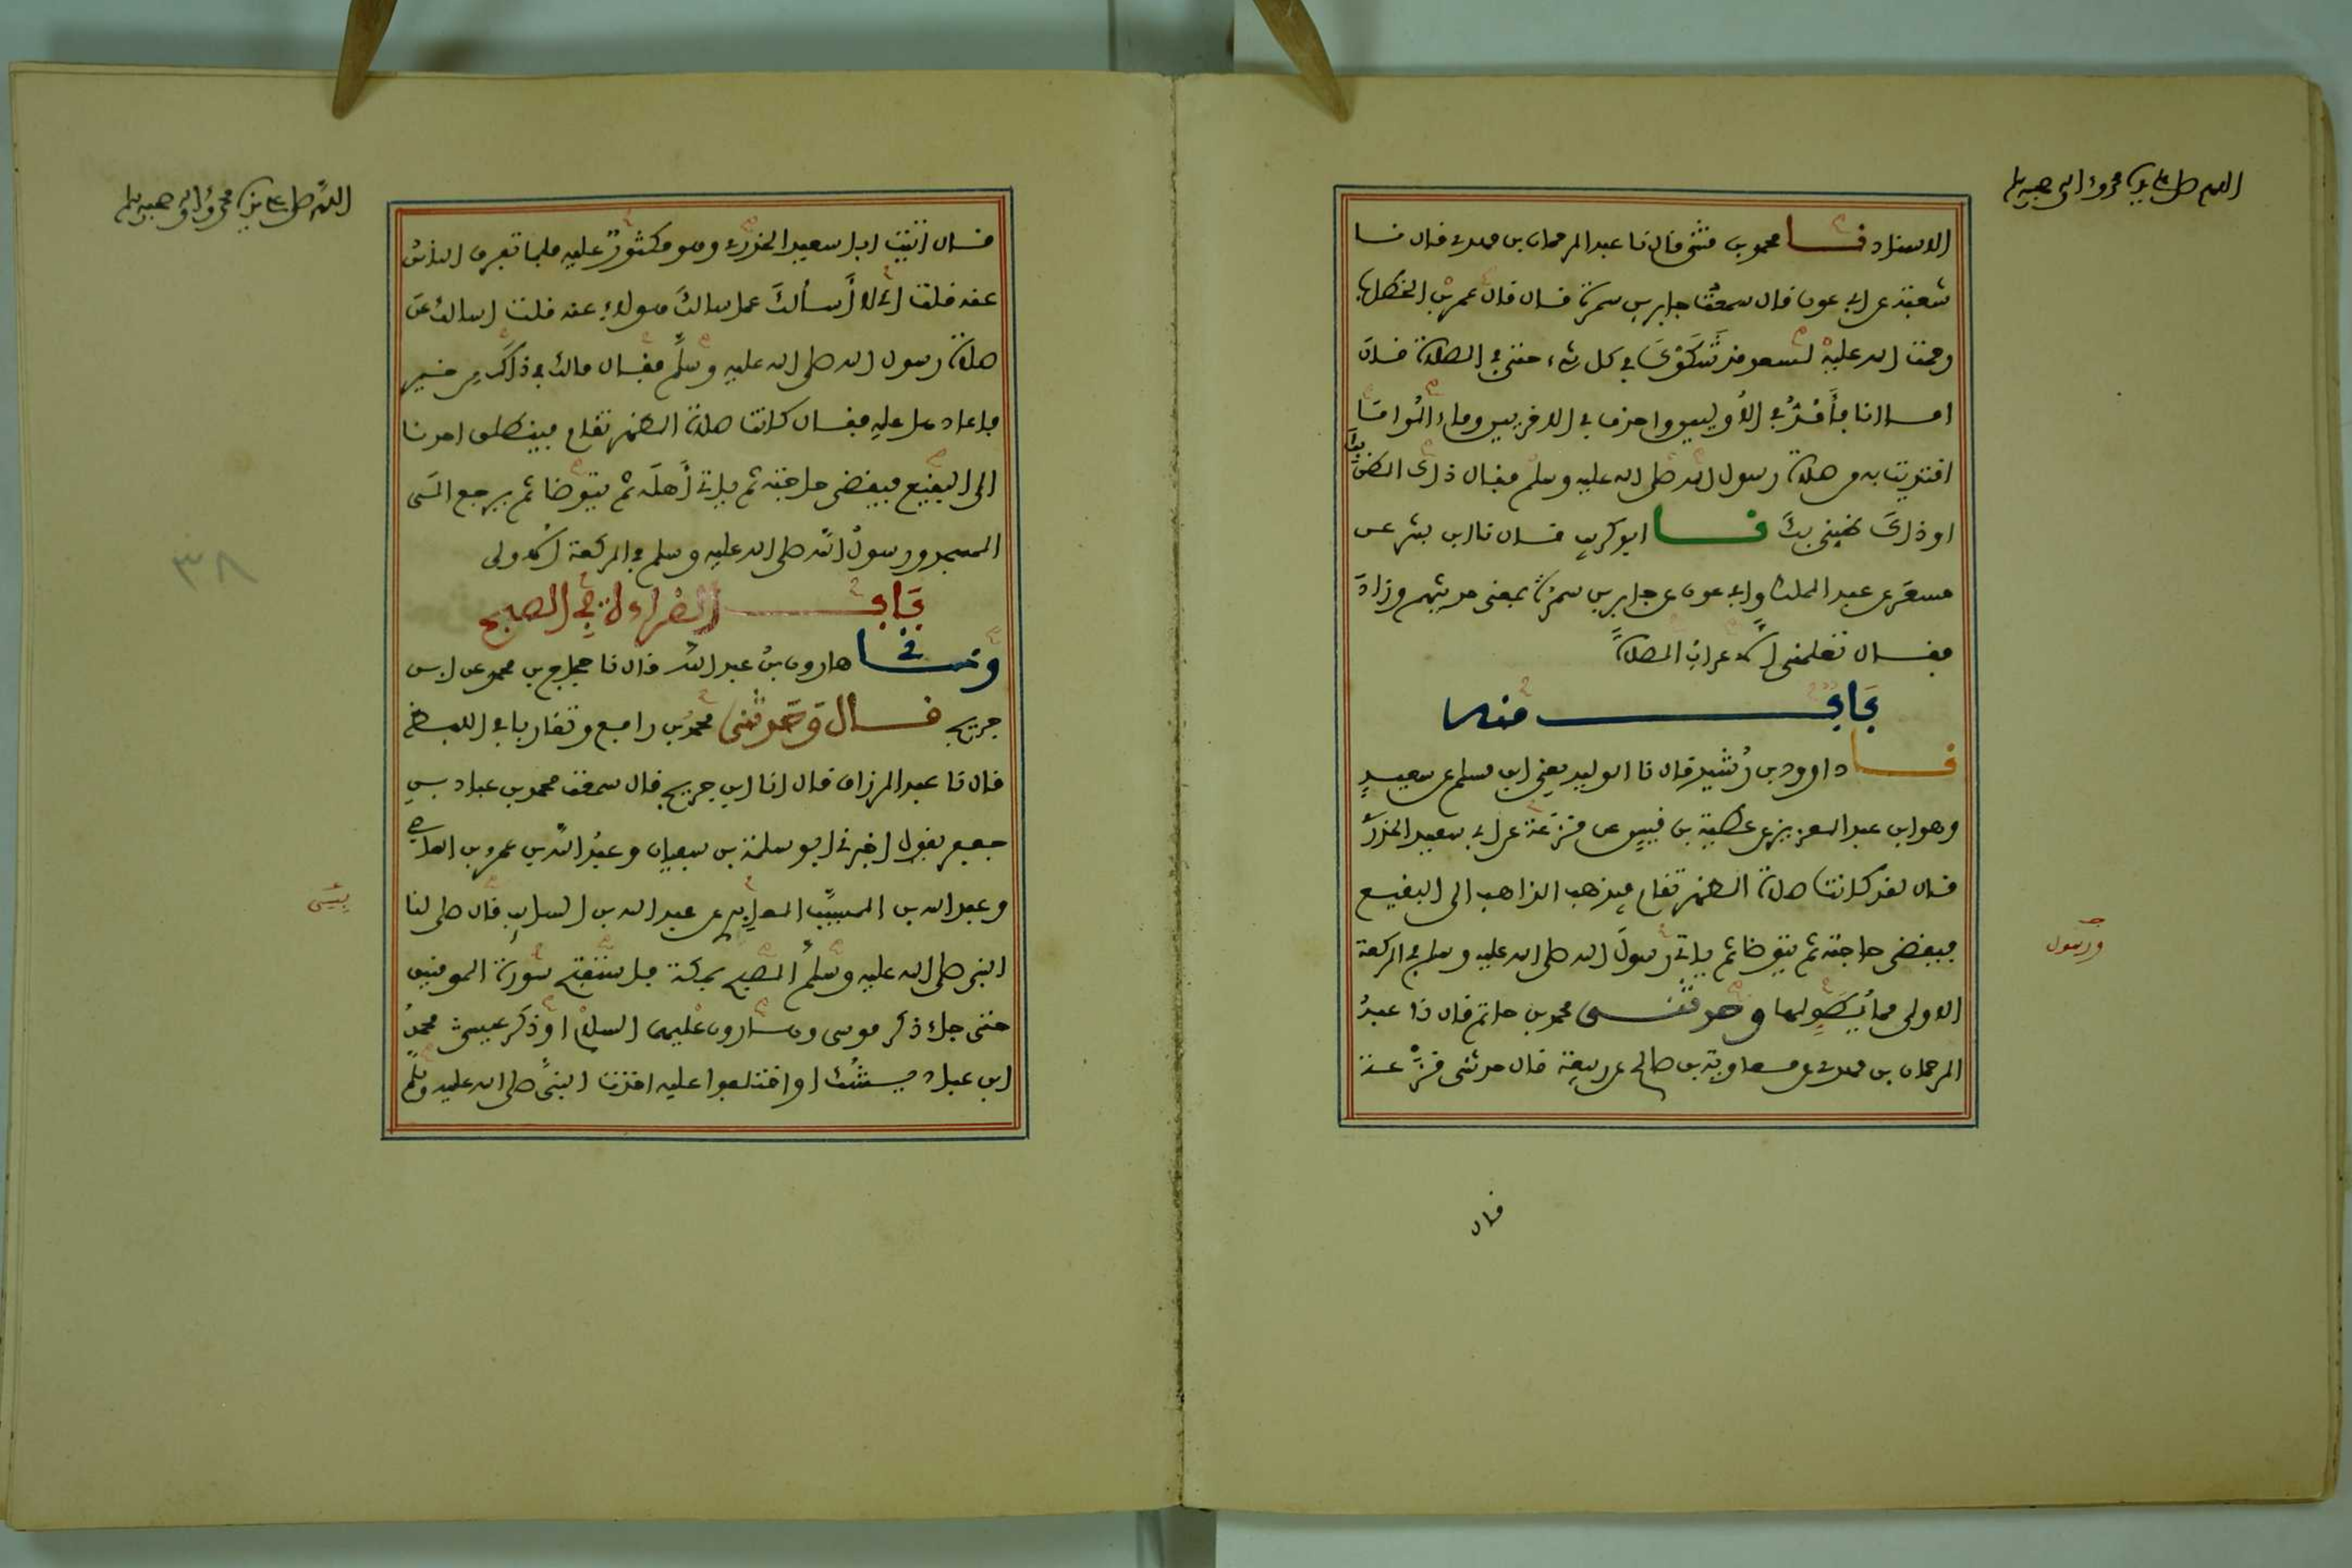 اللهم صل على سيدنا محمد وءاله وصحبه وسلم
الاسناد نا محمد بن مثنى قال نا عبد الرحمان بن مهدى قال نا
شعبة عن ابى عون قال سمعت جابر بن سمرة قال قال عمر بن الخطاب
رحمت الله عليه لسعد قد شكوك فى كل شىء حتى فى الصلاة قال
اما انا فأمد فى الأوليين واحذف فى الاخريين وماء الوا ما
اقتديت به من صلاة رسول الله صلى الله عليه وسلم فقال ذلك الظن بك
او ذلك ظنى بك نا ابو كريب قال نا ابن بشر عن
مسعر عن عبد الملك وابى عون عن جابر بن سمرة بمعنى حديثهم وزاد
فقال تعلمنى الاعراب الصلاة
باب منه
نا داوود بن رشيد قال نا الوليد يعنى ابن مسلم عن سعيد
وهو ابن عبد العزيز عن عطية بن قيس عن قزعة عن ابى سعيد الخدرى
قال لقد كانت صلاة الظهر تقام فيذهب الذاهب الى البقيع
فيقضى حاجته ثم يتوضا ثم ياتى رسول الله صلى الله عليه وسلم فى الركعة
ورسول
الاولى مما يطولها وحدثنى محمد بن حاتم قال نا عبد
الرحمان بن مهدى عن معاوية بن صالح عن ربيعة قال حدثنى قزعة
قال
اللهم صل على سيدنا محمد وءاله وصحبه وسلم
قال اتيت ابا سعيد الخدرى وهو مكثور عليه فلما تفرق الناس
عنه قلت انى لا أسألك عما سالك هولاء عنه قلت اسالك عن
صلاة رسول الله صلى الله عليه وسلم فقال مالك فى ذاك من خير
فاعادها عليه فقال كانت صلاة الظهر تقام فينطلق احدنا
الى البقيع فيقضى حاجته ثم ياتى أهله ثم يتوضا ثم يرجع الى
المسجد ورسول الله صلى الله عليه وسلم فى الركعة الاولى
٣٨
باب القراءة فى الصبح
ونا هارون بن عبد الله قال نا حجاج بن محمد عن ابن
جريج قال وحدثنى محمد بن رافع وتقاربا فى اللفظ
قال نا عبد الرزاق قال انا ابن جريج قال سمعت محمد بن عباد بن
جعفر يقول اخبرنى ابو سلمة بن سفيان وعبد الله بن عمرو بن العاصى
وعبد الله بن المسيب العابدى عن عبد الله بن السايب قال صلى لنا
النبى صلى الله عليه وسلم الصبح بمكة فاستفتح سورة المومنين
حتى جاء ذكر موسى وهارون عليهما السلام او ذكر عيسى محمد
ابن عباد يشك او اختلفوا عليه اخذت النبى صلى الله عليه وسلم